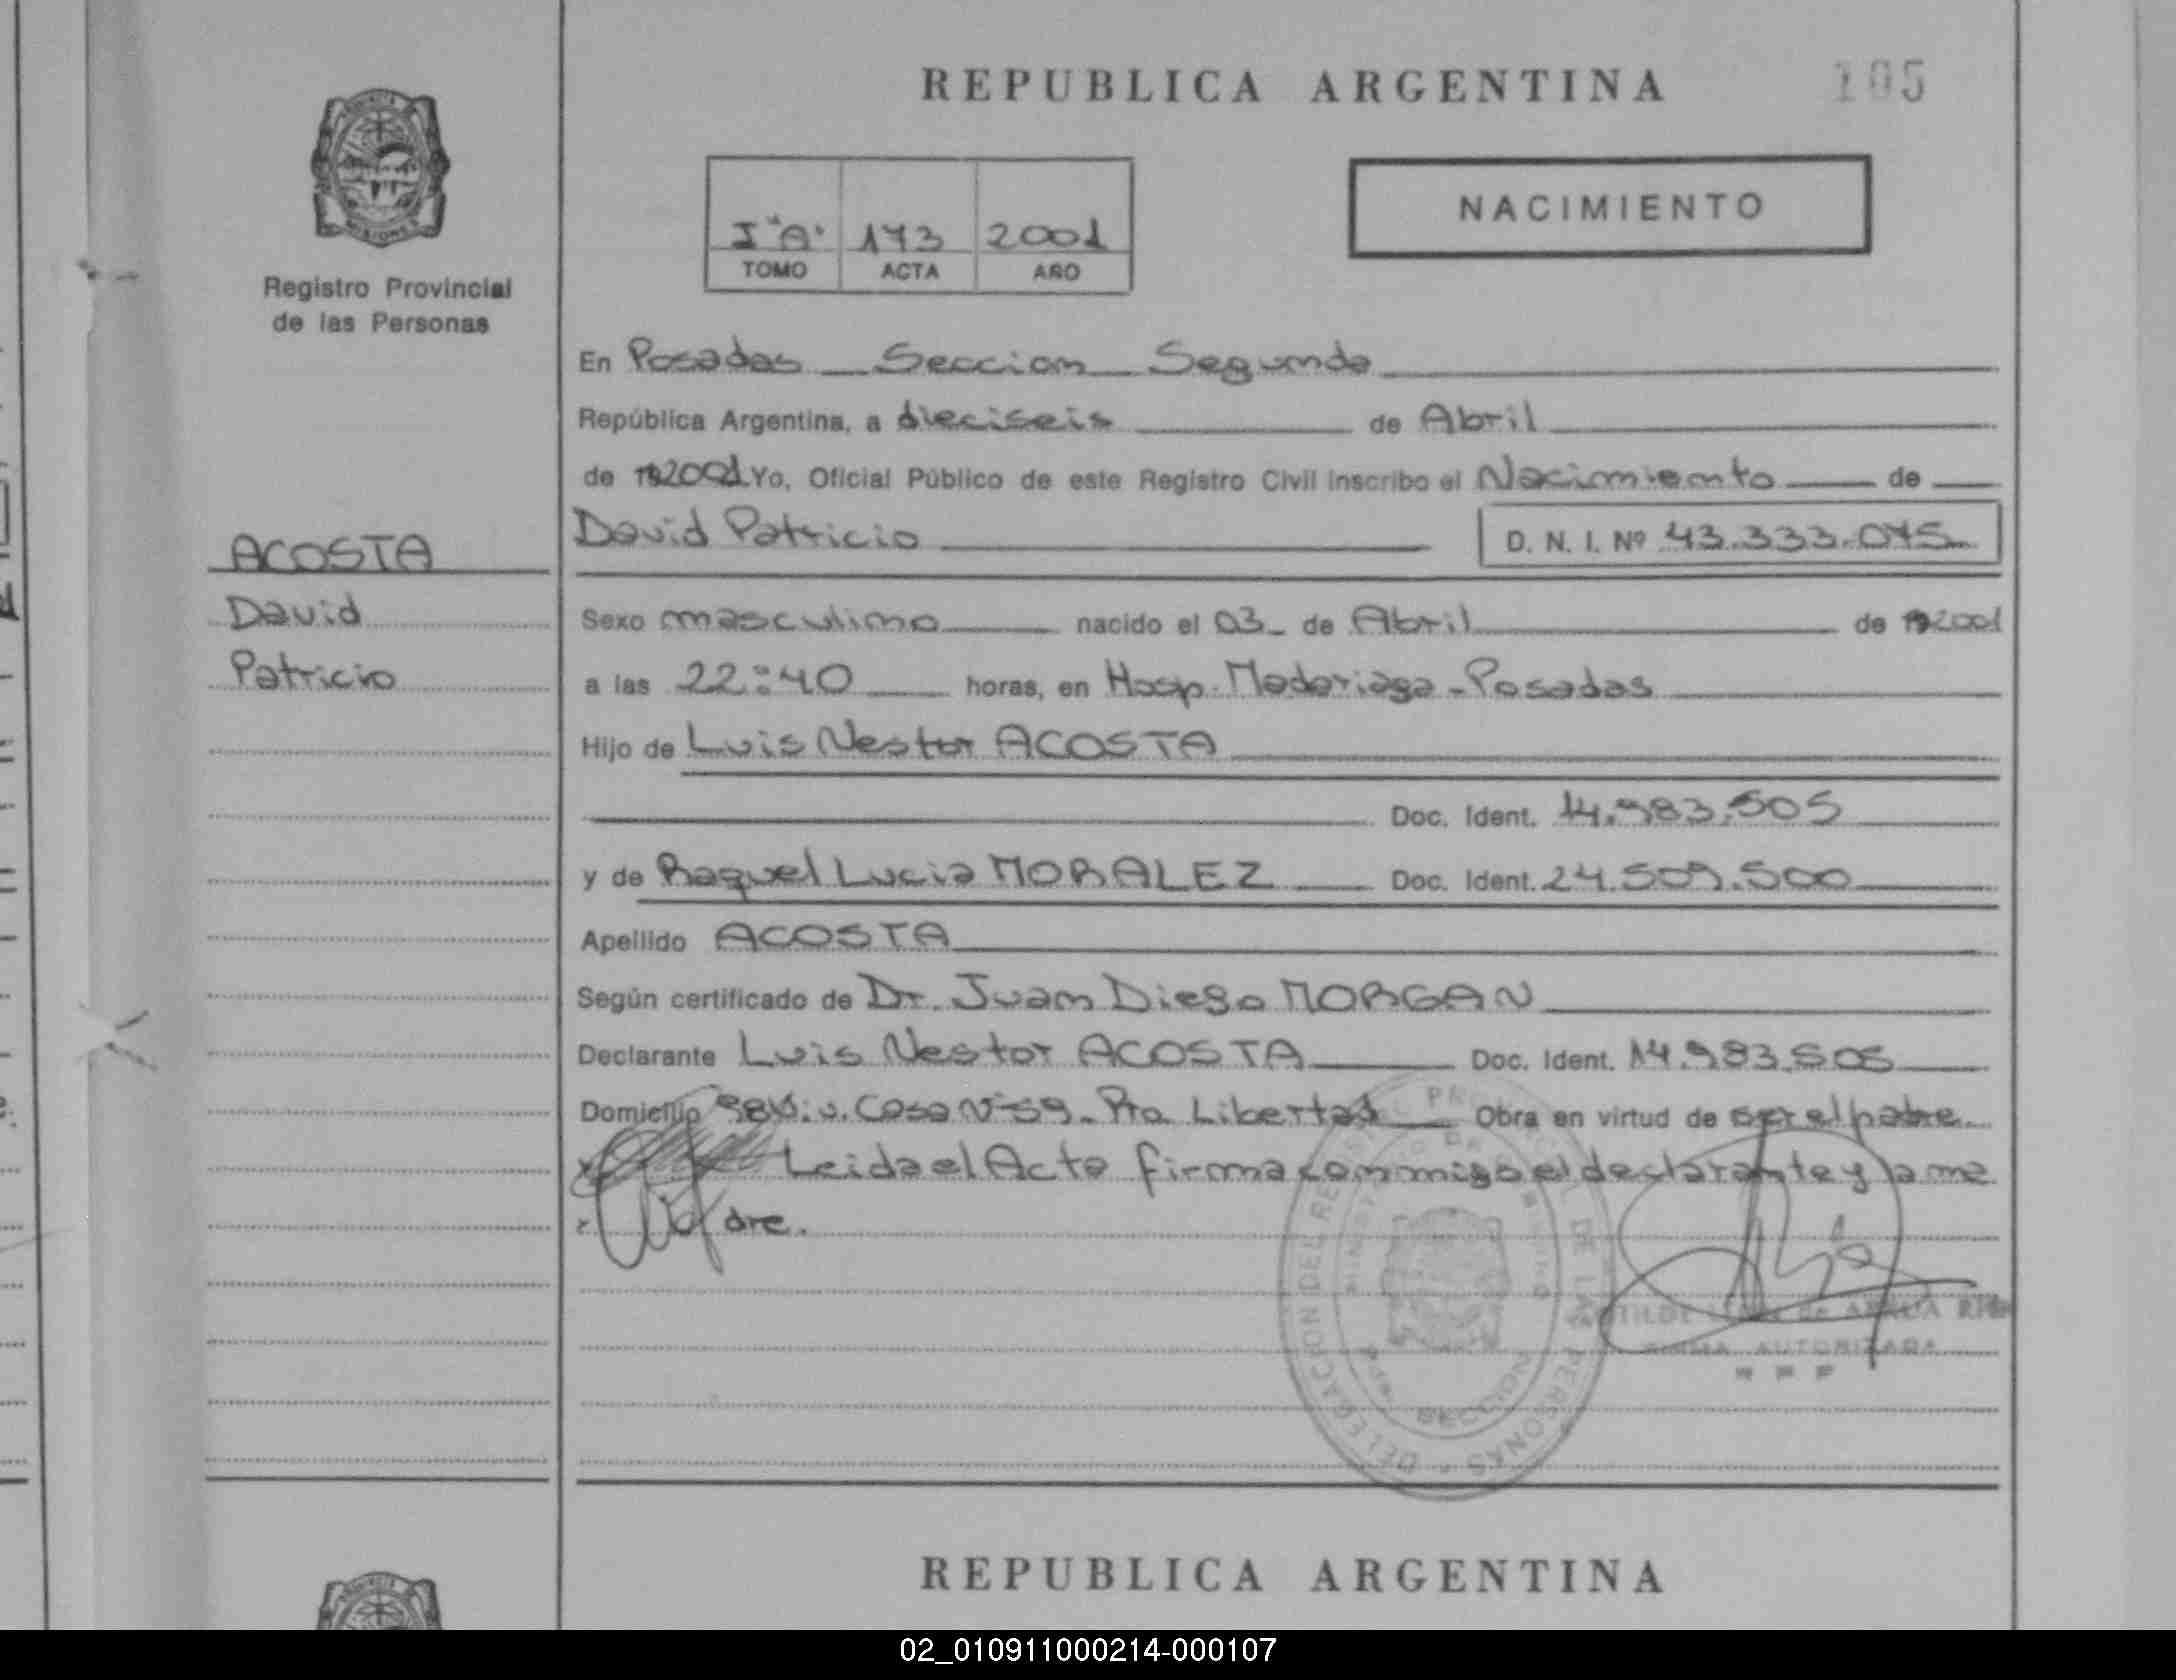 REPUBLICA ARGENTINA 105
I "A" 173 2001
TOMO ACTA AÑO
NACIMIENTO
MISIONES
Registro Provincial
de las Personas
En Posadas Seccion Segunda
República Argentina, a dieciseis de Abril
de 2001 Yo, Oficial Público de este Registro Civil inscribo el Nacimiento de
David Patricio D. N. I. Nº 43.333.075
ACOSTA
David
Patricio
Sexo masculino nacido el 03 de Abril de 2001
a las 22:40 horas, en Hosp. Madariaga - Posadas
Hijo de Luis Nestor ACOSTA
Doc. Ident. 14.983.505
y de Raquel Lucia MORALEZ Doc. Ident. 24.509.500
Apellido ACOSTA
Según certificado de Dr. Juan Diego MORGAN
Declarante Luis Nestor ACOSTA Doc. Ident. 14.983.505
Domicilio Casa Nº 59 - Pto. Libertad Obra en virtud de ser el padre.
Leida el Acta firma conmigo el declarante y la ma
dre.
DELEGACION DEL REGISTRO PROVINCIAL DE LAS PERSONAS
FIRMA AUTORIZADA
REPUBLICA ARGENTINA
02_010911000214-000107